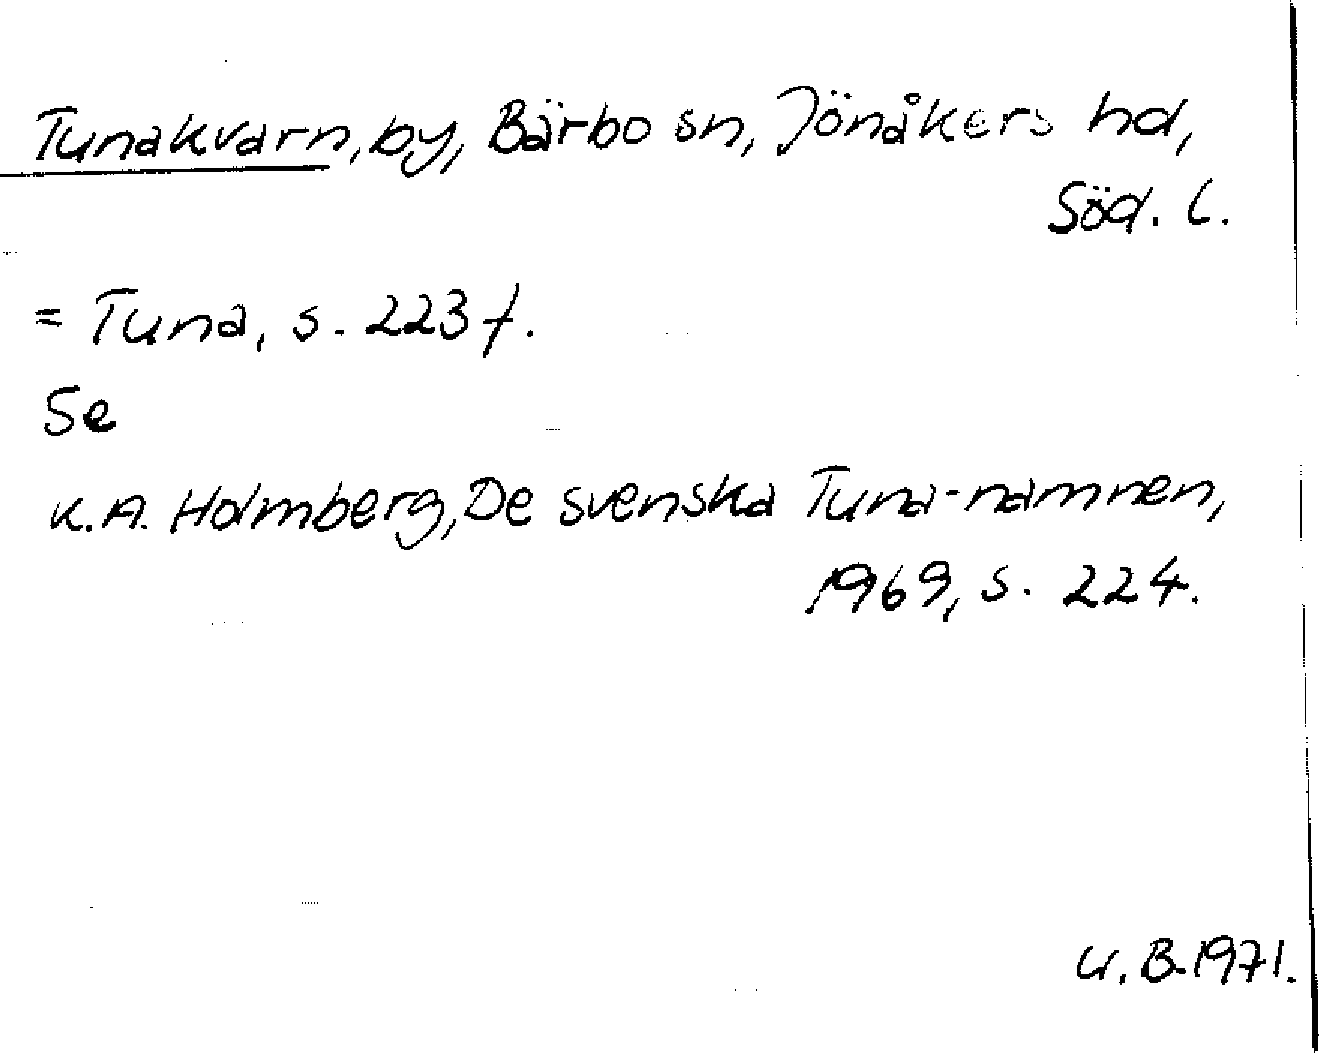 Tunakvarn, by, Bärbo sn, Jönåkers hd,
Söd. l.
= Tuna, s. 223 f.
Se
K.A. Holmberg, De svenska Tuna-namnen,
1969, s. 224.
U.B. 1971.